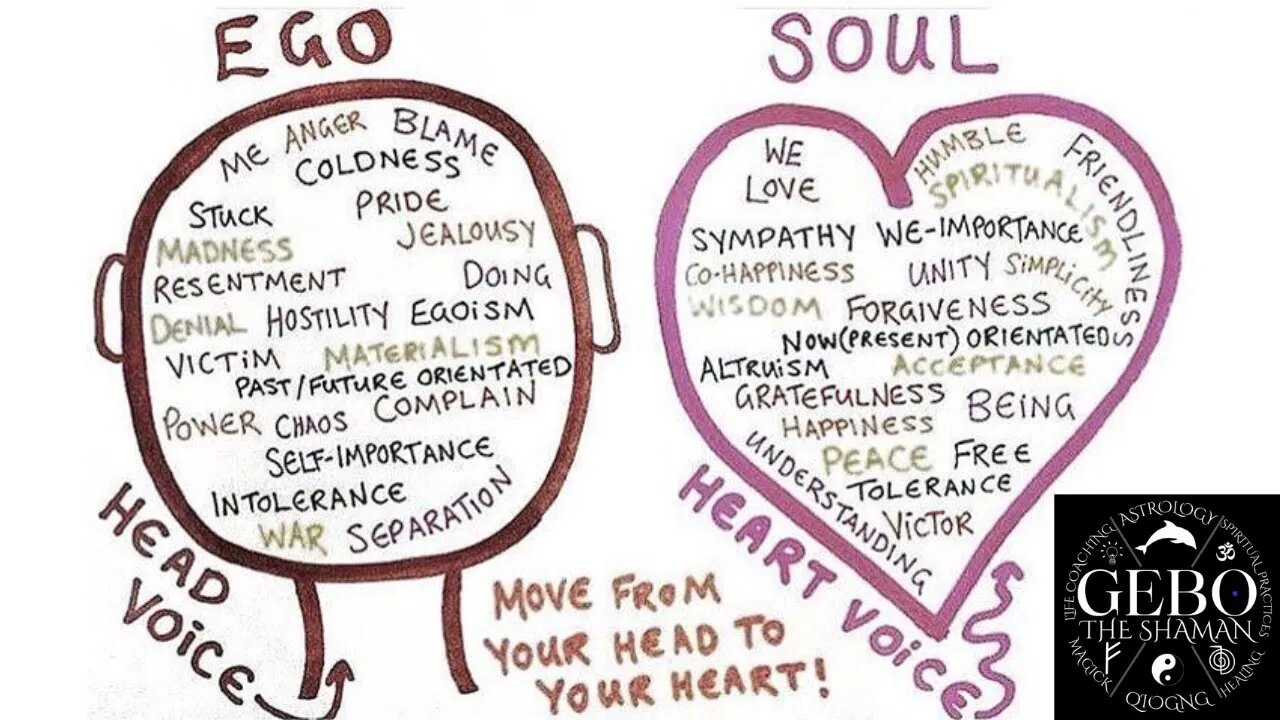 EGO
ME ANGER BLAME
COLDNESS
STUCK PRIDE
MADNESS JEALOUSY
RESENTMENT DOING
DENIAL HOSTILITY EGOISM
VICTIM MATERIALISM
PAST/FUTURE ORIENTATED
POWER CHAOS COMPLAIN
SELF-IMPORTANCE
INTOLERANCE
WAR SEPARATION
HEAD
VOICE
MOVE FROM
YOUR HEAD TO
YOUR HEART!
SOUL
WE
LOVE
HUMBLE
SPIRITUALISM
FRIENDLINESS
SYMPATHY WE-IMPORTANCE
CO-HAPPINESS UNITY SIMPLICITY
WISDOM FORGIVENESS
NOW(PRESENT) ORIENTATED
ALTRUISM ACCEPTANCE
GRATEFULNESS BEING
HAPPINESS
PEACE FREE
TOLERANCE
UNDERSTANDING
VICTOR
HEART VOICE
LIFE COACHING
ASTROLOGY
SPIRITUAL PRACTICES
GEBO
THE SHAMAN
MAGICK
QIOGNG
HEALING
ॐ